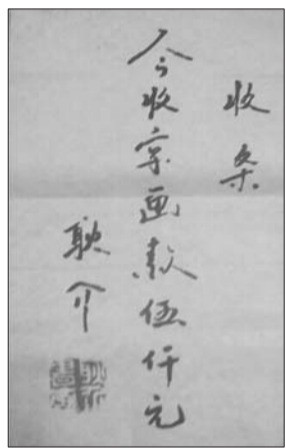 收条
今收字画款伍仟元
耿介